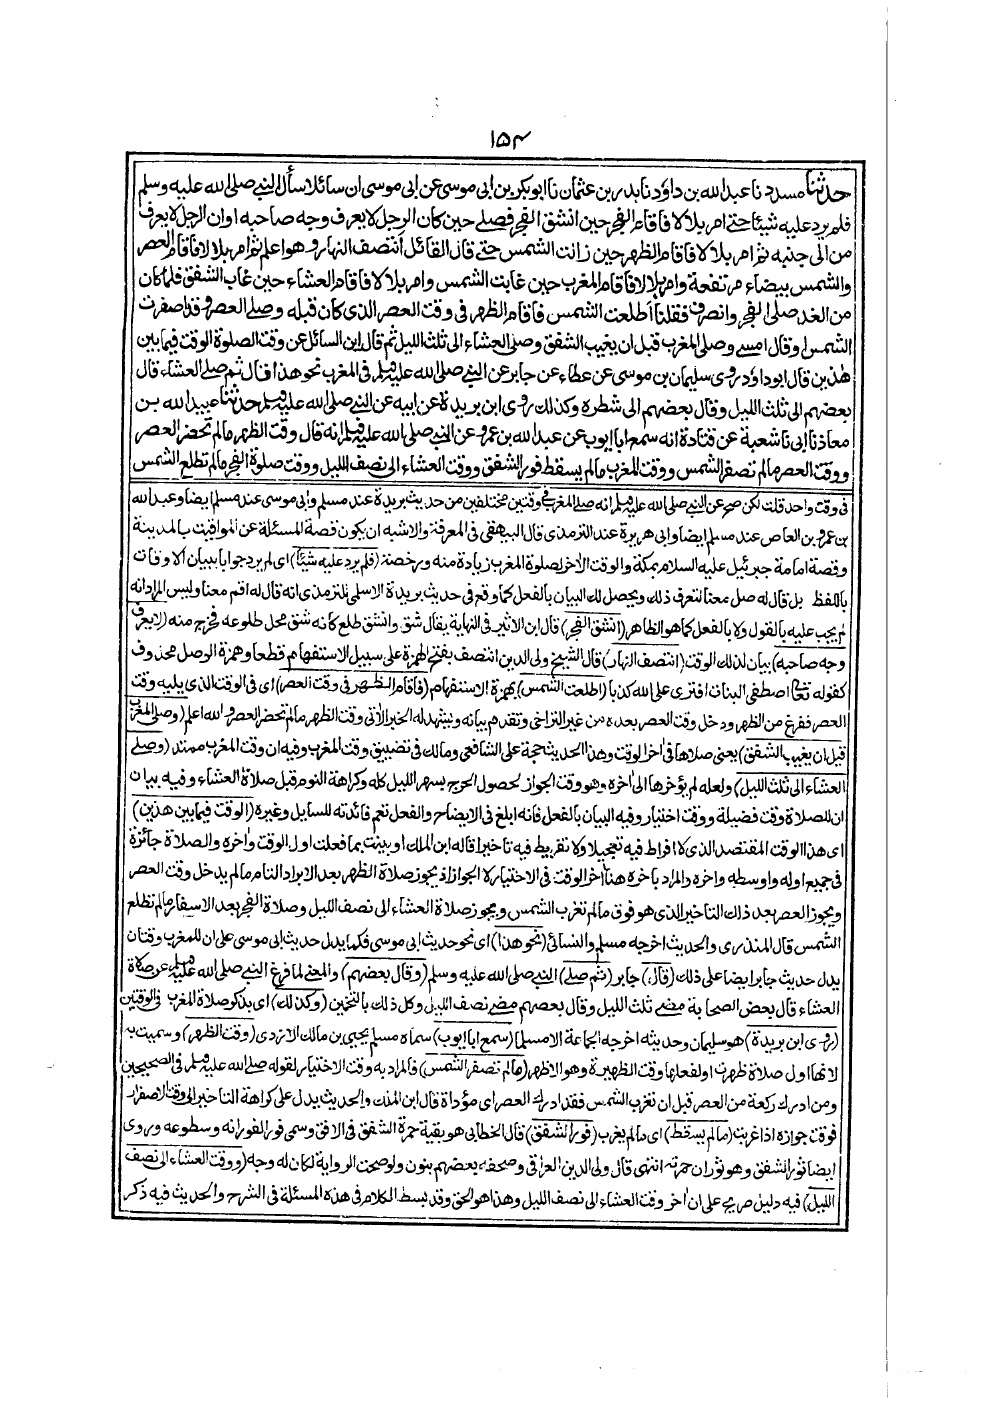 ١٥٣
حدثنا مسدد نا عبدالله بن داؤد نا بدر بن عثمان نا ابو بكر بن ابى موسى عن ابى موسى ان سائلا سأل النبى صلى الله عليه وسلم
فلم يرد عليه شيئا حتى امر بلالا فاقام الفجر حين انشق الفجر فصلى حين كان الرجل لا يعرف وجه صاحبه او ان الرجل لا يعرف
من الى جنبه ثم امر بلالا فاقام الظهر حين زالت الشمس حتى قال القائل انتصف النهار و هو اعلم ثم امر بلالا فاقام العصر
والشمس بيضاء مرتفعة وامر بلالا فاقام المغرب حين غابت الشمس وامر بلالا فاقام العشاء حين غاب الشفق فلما كان
من الغد صلى الفجر وانصرف فقلنا اطلعت الشمس فاقام الظهر فى وقت العصر الذى كان قبله وصلى العصر وقد اصفرت
الشمس او قال امسى وصلى المغرب قبل ان يغيب الشفق وصلى العشاء الى ثلث الليل ثم قال اين السائل عن وقت الصلوة الوقت فيما بين
هذين قال ابو داؤد روى سليمان بن موسى عن عطاء عن جابر عن النبى صلى الله عليه وسلم فى المغرب نحو هذا قال ثم صلى العشاء قال
بعضهم الى ثلث الليل وقال بعضهم الى شطره وكذلك روى ابن بريدة عن ابيه عن النبى صلى الله عليه وسلم حدثنا عبيد الله بن
معاذ نا ابى نا شعبة عن قتادة انه سمع ابا ايوب عن عبد الله بن عمرو عن النبى صلى الله عليه وسلم انه قال وقت الظهر ما لم تحضر العصر
ووقت العصر ما لم تصفر الشمس ووقت المغرب ما لم يسقط فور الشفق ووقت العشاء الى نصف الليل ووقت صلوة الفجر ما لم تطلع الشمس
فى وقت واحد قلت لكن صح عن النبى صلى الله عليه وسلم انه صلى المغرب فى وقتين مختلفين من حديث بريدة عند مسلم وابى موسى عند مسلم ايضا وعبد الله
بن عمرو بن العاص عند مسلم ايضا وابى هريرة عند الترمذى قال البيهقى فى المعرفة والاشبه ان يكون قصة المسئلة عن المواقيت بالمدينة
وقصة امامة جبرئيل عليه السلام بمكة والوقت الآخر لصلوة المغرب زيادة منه ورخصة (فلم يرد عليه شيئا) اى لم يرد جوابا ببيان الاوقات
باللفظ بل قال له صل معنا لتعرف ذلك ويحصل لك البيان بالفعل كما وقع فى حديث بريدة الاسلمى للترمذى انه قال له اقم معنا وليس المراد انه
لم يجب عليه بالقول ولا بالفعل كما هو الظاهر (انشق الفجر) قال ابن الاثير فى النهاية يقال شق وانشق طلع كانه شق محل طلوعه فخرج منه (لا يعرف
وجه صاحبه) بيان لذلك الوقت (انتصف النهار) قال الشيخ ولى الدين انتصف بفتح الهمزة على سبيل الاستفهام قطعا وهمزة الوصل محذوف
كقوله تعالى اصطفى البنات افترى على الله كذبا (اطلعت الشمس) بهمزة الاستفهام (فاقام الظهر فى وقت العصر) اى فى الوقت الذى يليه وقت
العصر ففرغ من الظهر ودخل وقت العصر بعده من غير التراخى وتقدم بيانه ويشهد له الخبر الآتى وقت الظهر ما لم تحضر العصر والله اعلم (وصلى المغرب
قبل ان يغيب الشفق) يعنى صلاها فى اخر الوقت وهذا الحديث حجة على الشافعى ومالك فى تضييق وقت المغرب وفيه ان وقت المغرب ممتد (وصلى
العشاء الى ثلث الليل) ولعله لم يؤخرها الى اخره وهو وقت الجواز لحصول الحرج بسهر الليل كله وكراهة النوم قبل صلاة العشاء وفيه بيان
ان للصلاة وقت فضيلة ووقت اختيار وفيه البيان بالفعل فانه ابلغ فى الايضاح والفعل تعم فائدته للسايل وغيره (الوقت فيما بين هذين)
اى هذا الوقت المقتصد الذى لا افراط فيه تعجيلا ولا تفريط فيه تاخيرا قاله ابن الملك او بينت بما فعلت اول الوقت واخره والصلاة جائزة
فى جميع اوله واوسطه واخره والمراد باخره هنا اخر الوقت فى الاختيار لا الجواز اذ يجوز صلاة الظهر بعد الابراد التام ما لم يدخل وقت العصر
ويجوز العصر بعد ذلك التاخير الذى هو فوق ما لم تغرب الشمس ويجوز صلاة العشاء الى نصف الليل وصلاة الفجر بعد الاسفار ما لم تطلع
الشمس قال المنذرى والحديث اخرجه مسلم والنسائى (نحو هذا) اى نحو حديث ابى موسى فكما يدل حديث ابى موسى على ان للمغرب وقتان
يدل حديث جابر ايضا على ذلك (قال) جابر (ثم صلى) النبى صلى الله عليه وسلم (وقال بعضهم) والمعنى لما فرغ النبى صلى الله عليه وسلم عن صلاة
العشاء قال بعض الصحابة مضى ثلث الليل وقال بعضهم مضى نصف الليل وكل ذلك بالتخمين (وكذلك) اى بذكر صلاة المغرب فى الوقتين
(روى ابن بريدة) هو سليمان وحديثه اخرجه الجماعة الا مسلما (سمع ابا ايوب) سماه مسلم يحيى بن مالك الازدى (وقت الظهر) وسميت به
لانها اول صلاة ظهرت او لفعلها وقت الظهيرة وهو الاظهر (ما لم تصفر الشمس) فالمراد به وقت الاختيار لقوله صلى الله عليه وسلم فى الصحيحين
ومن ادرك ركعة من العصر قبل ان تغرب الشمس فقد ادرك العصر اى مؤداة قال ابن الملك والحديث يدل على كراهة التاخير الى وقت الاصفرار
فوقت جوازه اذا غربت (ما لم يسقط) اى ما لم يغرب (فور الشفق) قال الخطابى هو بقية حمرة الشفق فى الافق وسمى فور الفورانه وسطوعه وروى
ايضا ثور الشفق وهو ثوران حمرته انتهى قال ولى الدين العراقى وصحفه بعضهم بنون ولو صحت الرواية لكان له وجه (ووقت العشاء الى نصف
الليل) فيه دليل صريح على ان اخر وقت العشاء الى نصف الليل وهذا هو الحق وقد بسط الكلام فى هذه المسئلة فى الشرح والحديث فيه ذكر